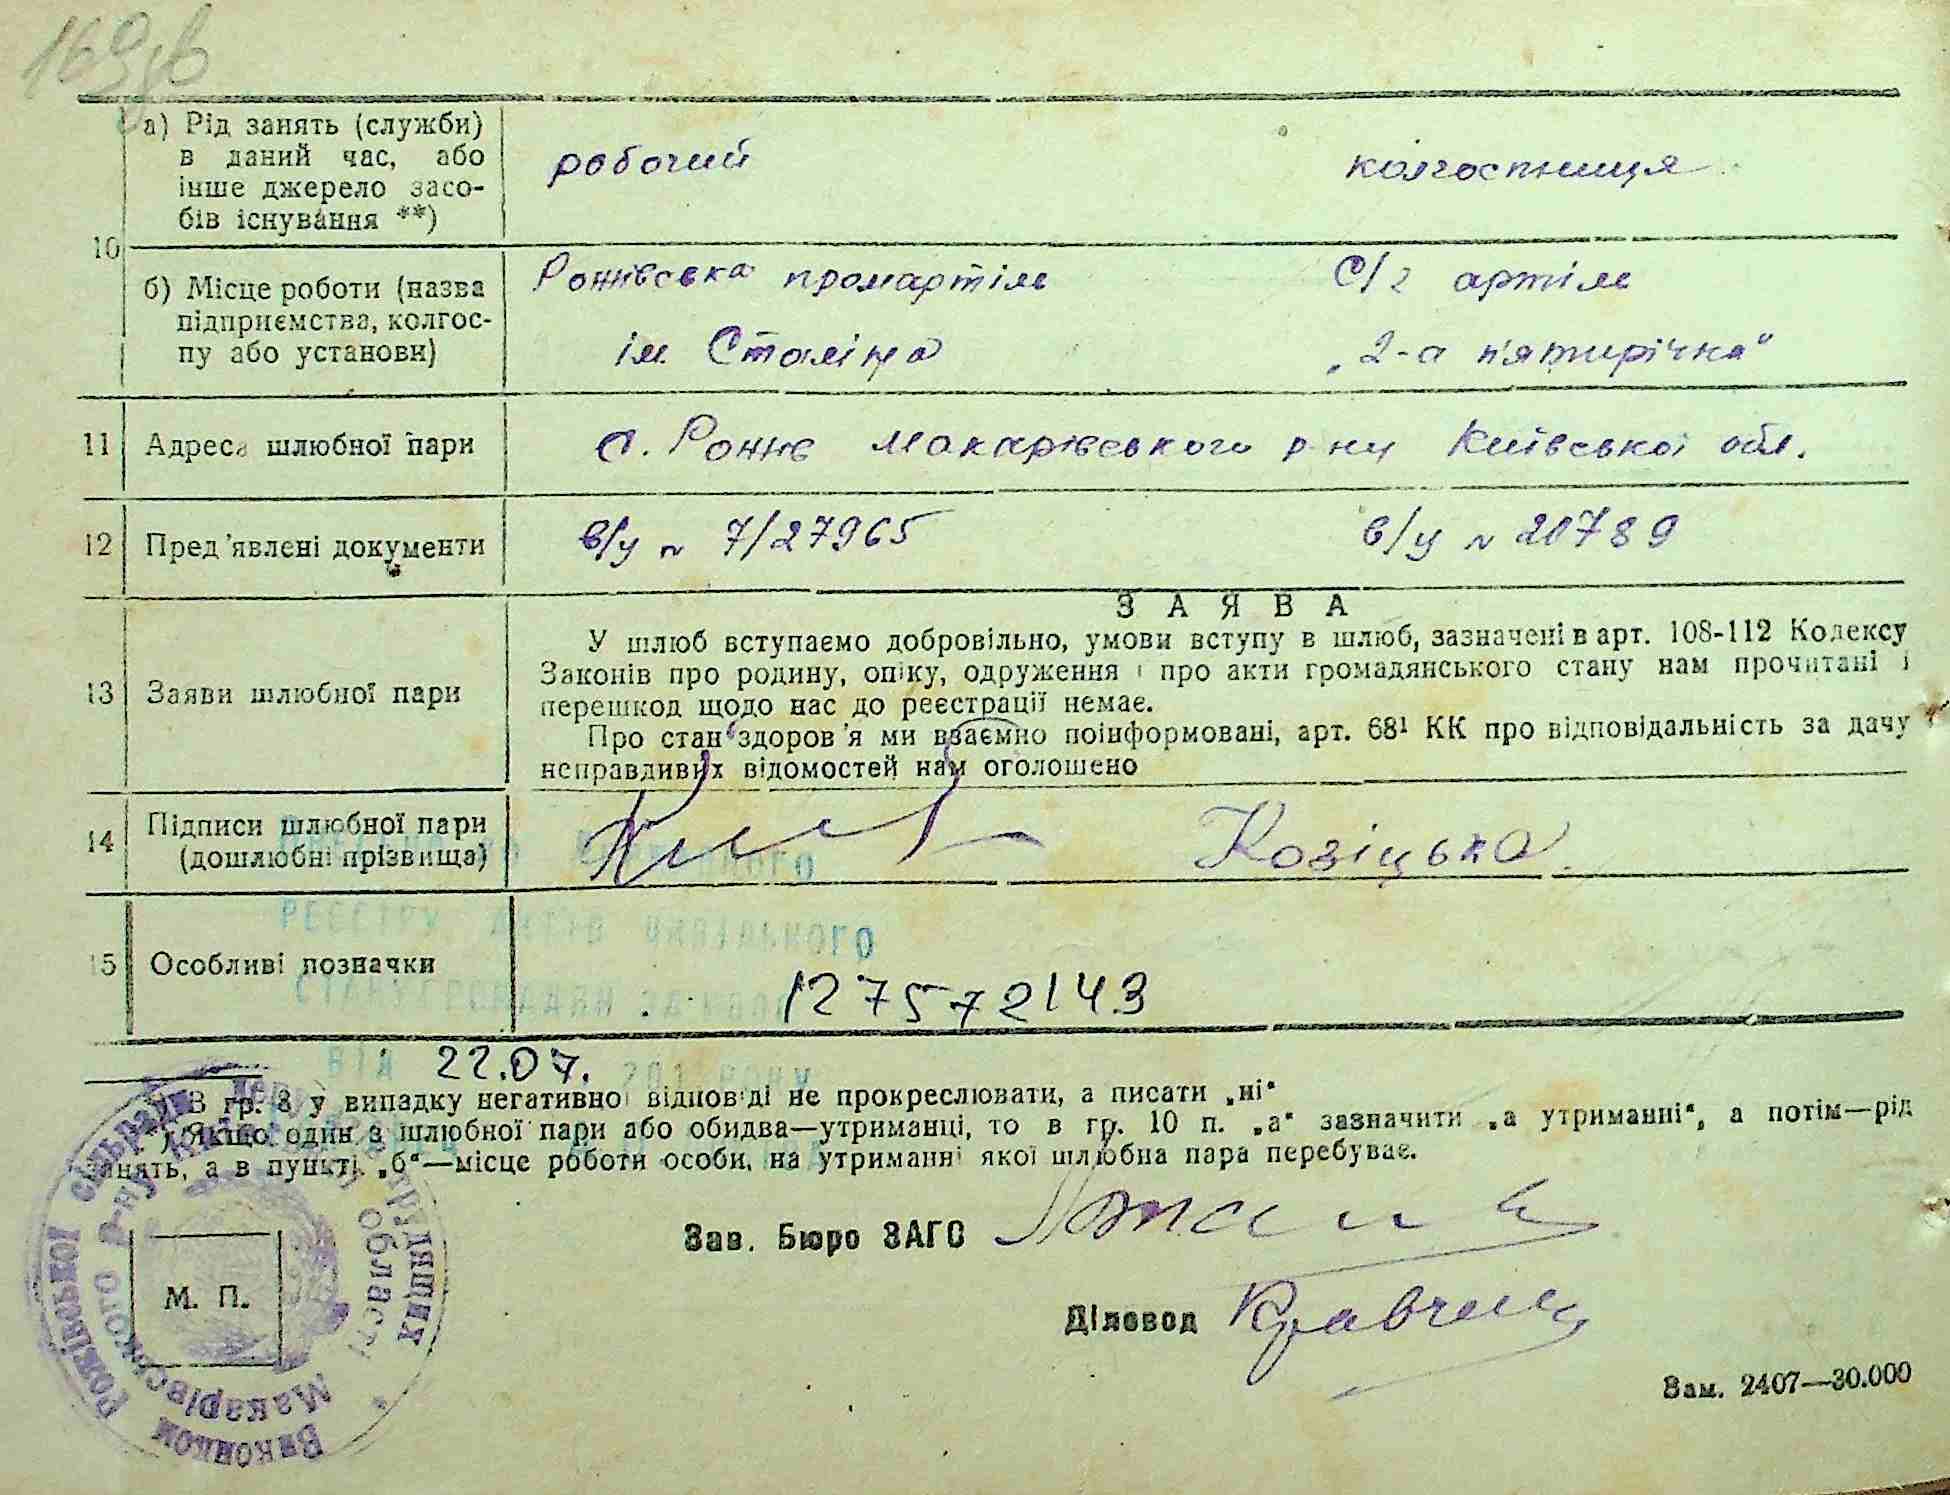 169зв
10
а) Рід занять (служби)
в даний час, або
інше джерело засо-
бів існування **)
робочий
колгоспниця
б) Місце роботи (назва
підприємства, колгос-
пу або установи)
Рожівська промартіль
ім Сталіна
С/г артіль
"2-а п'ятирічка"
11 Адреса шлюбної пари
с. Рожів Макарівського р-ну Київської обл.
12 Пред'явлені документи
в/у № 7/27965
в/у № 20789
13 Заяви шлюбної пари
ЗАЯВА
У шлюб вступаємо добровільно, умови вступу в шлюб, зазначені в арт. 108-112 Кодексу
Законів про родину, опіку, одруження і про акти громадянського стану нам прочитані і
перешкод щодо нас до реєстрації немає.
Про стан здоров'я ми взаємно поінформовані, арт. 68¹ КК про відповідальність за дачу
неправдивих відомостей нам оголошено
14 Підписи шлюбної пари
(дошлюбні прізвища)
Козіцька
РЕЄСТРУ АКТІВ ЦИВІЛЬНОГО
15 Особливі позначки
127572143
ВІД 22.07. 201 РОКУ
*) В гр. 8 у випадку негативної відповіді не прокреслювати, а писати „ні“
**) Якщо один з шлюбної пари або обидва—утриманці, то в гр. 10 п. „а“ зазначити „а утриманні“, а потім—рід
занять, а в пункті „б“—місце роботи особи, на утриманні якої шлюбна пара перебуває.
Зав. Бюро ЗАГС
М. П.
Діловод
Виконком Рожівської сільради депутатів трудящих
Макарівського р-ну Київської області
Зам. 2407—30.000